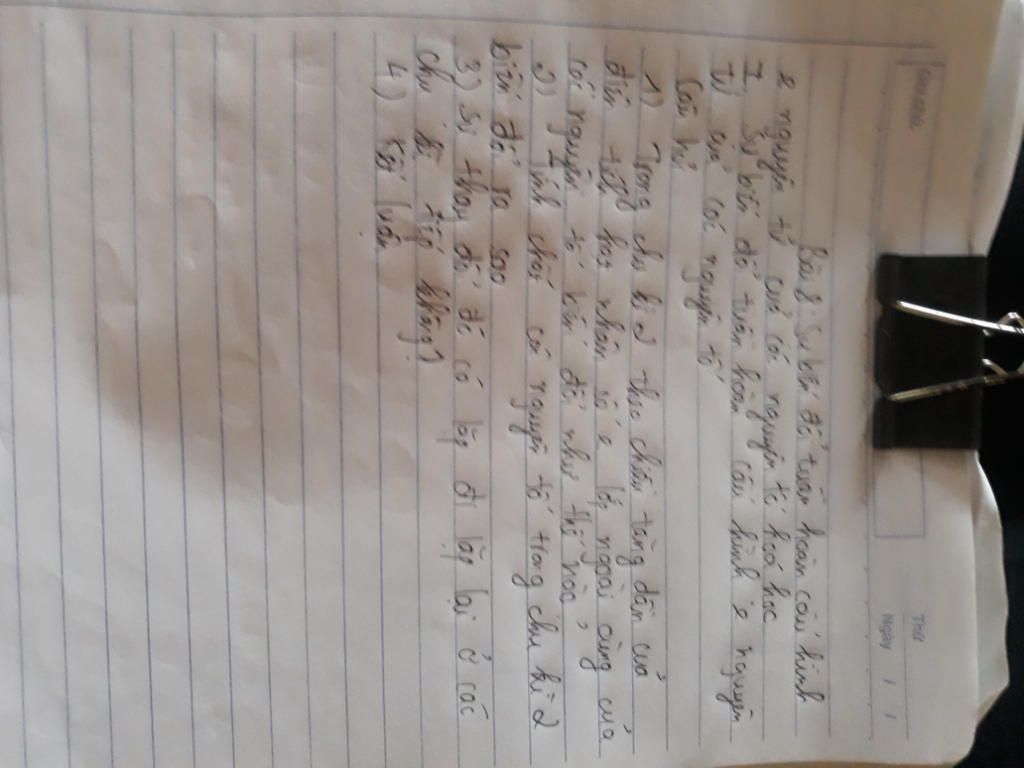 Thứ
Ngày / /
Bài 8: Sự biến đổi tuần hoàn cấu hình
e nguyên tử của các nguyên tố hoá học
I Sự biến đổi tuần hoàn cấu hình e nguyên
tử của các nguyên tố
Câu hỏi
1) Trong chu kì 2 theo chiều tăng dần của
điện tích hạt nhân số e lớp ngoài cùng của
các nguyên tố biến đổi như thế nào,
2) Tính chất các nguyên tố trong chu kì 2
biến đổi ra sao
3) Sự thay đổi đó có lặp đi lặp lại ở các
chu kì tiếp không?
4) Kết luận